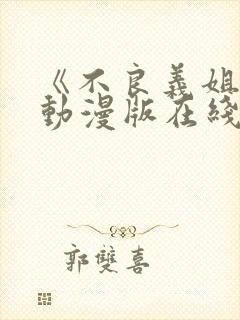 《不良義姐
動漫版在綫
郭雙喜